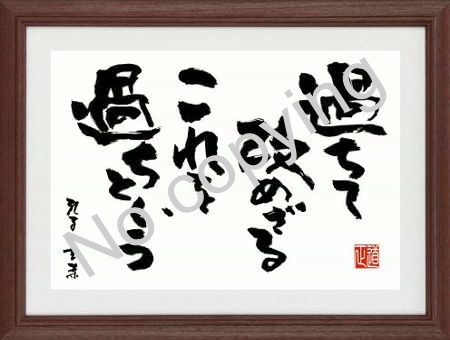 過ちて
改めざる
これを
過ちという
孔子
No copying